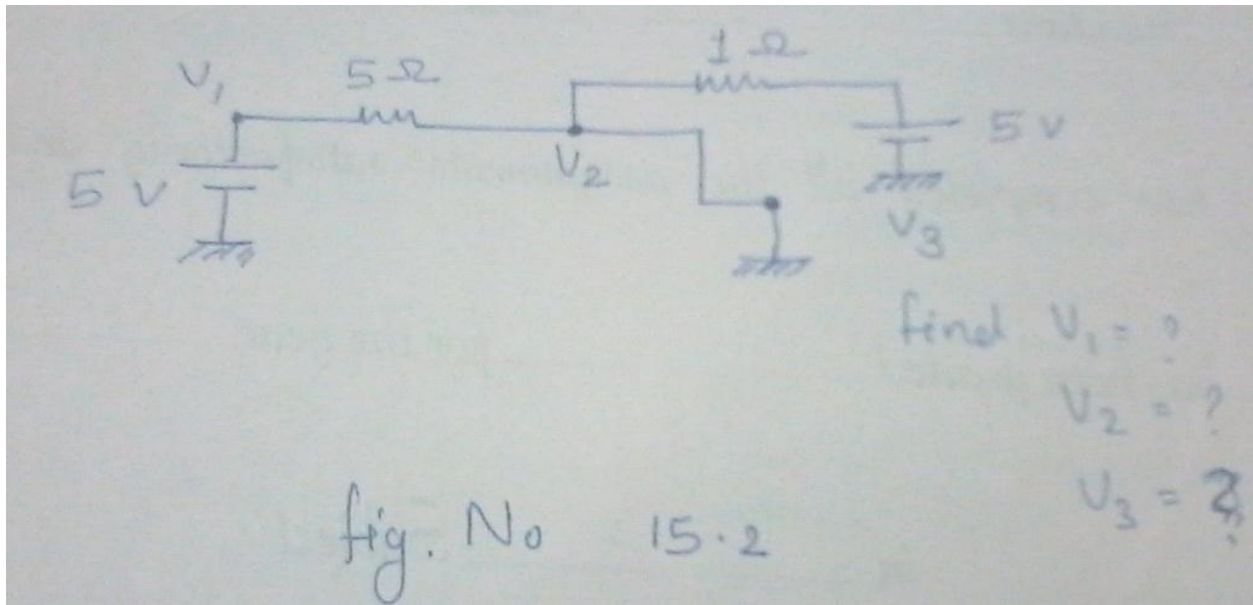 V₁ 5 Ω 1 Ω
5 V V₂ 5 V
V₃
find V₁ = ?
V₂ = ?
V₃ = ?
fig. No 15.2